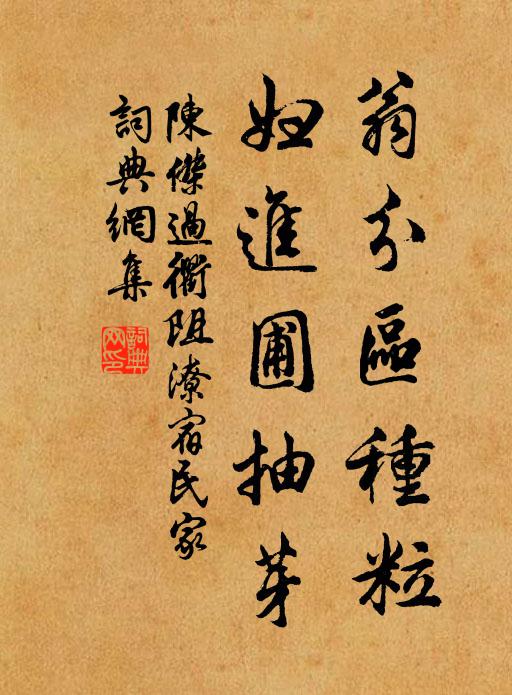 翁分區種粒
婦進圃抽芽
陳傑過衢阻潦宿民家
詞典網集
詞典
网印